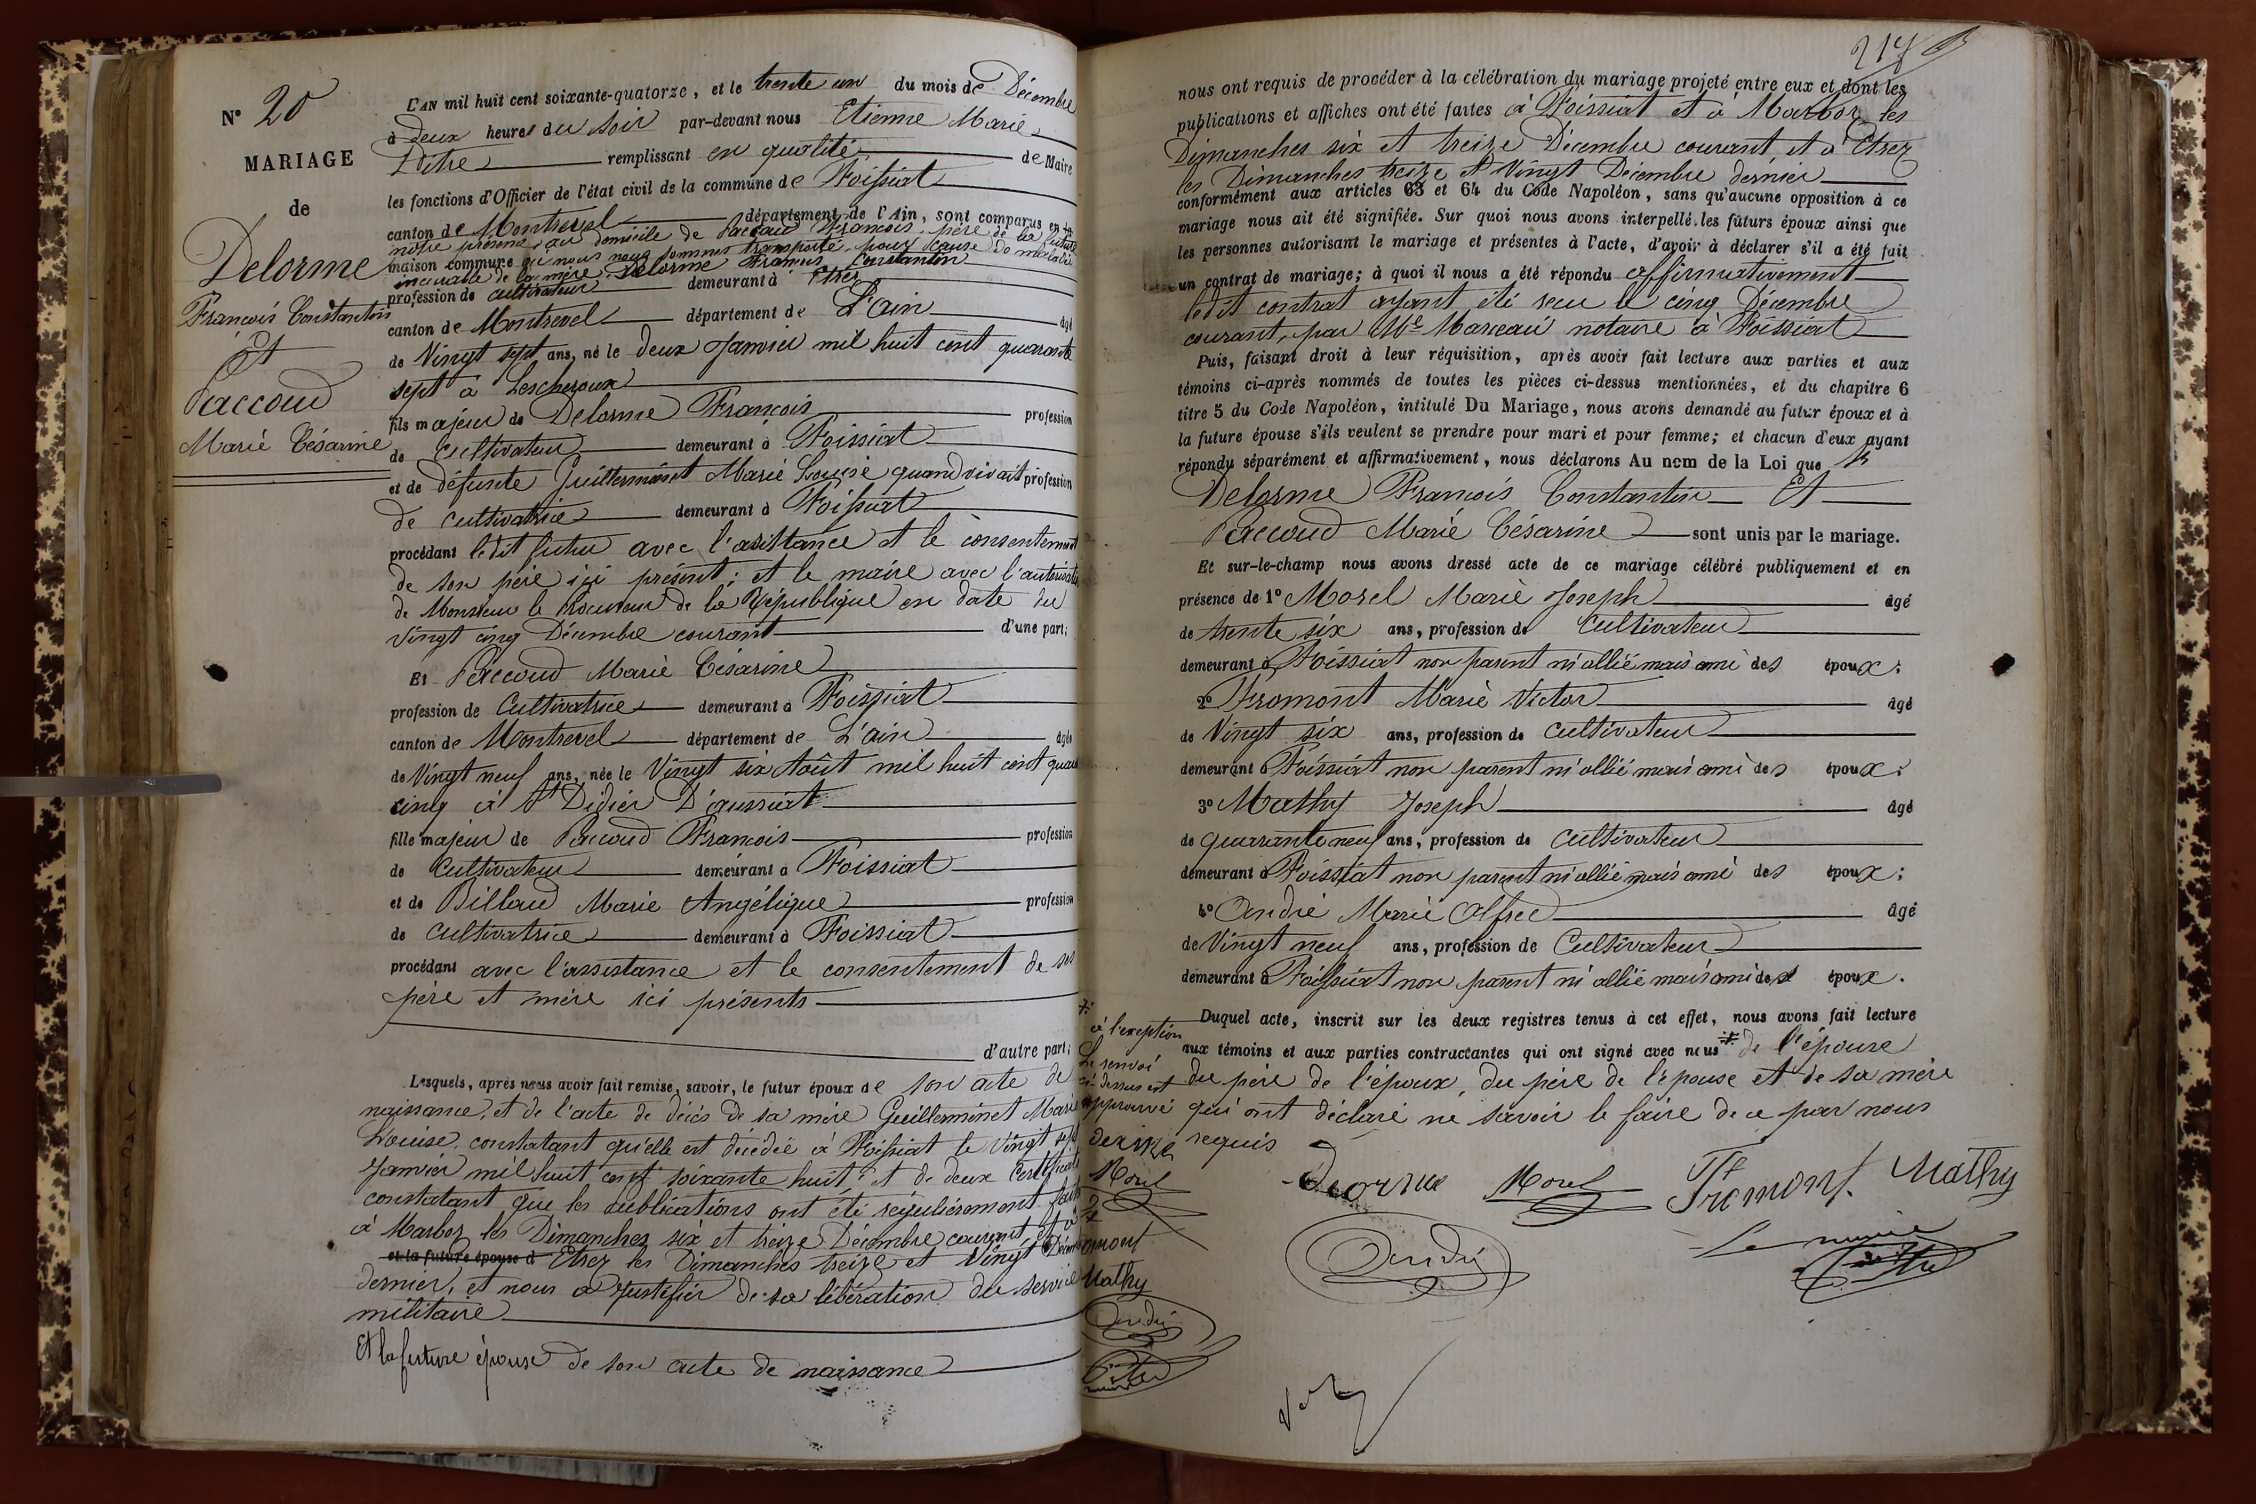 N° 20
MARIAGE
de
Delorme
François Constantin
Et
Paccoud
Marie Césarine
L'AN mil huit cent soixante-quatorze, et le trente un du mois de Décembre
à deux heures du soir par-devant nous Etienne Marie
Pitre remplissant en qualité de Maire
les fonctions d'Officier de l'état civil de la commune de Foissiat
canton de Montrevel département de l'Ain, sont comparus en
notre présence, au domicile de Paccoud François, père de la future
maison commune où nous nous sommes transporté, pour cause de maladie
de la mère. Delorme François Constantin
profession de cultivateur demeurant à Etrez
canton de Montrevel département de L'ain âgé
de Vingt sept ans, né le deux Janvier mil huit cent quarante
sept à Lescheroux
fils majeur de Delorme François profession
de Cultivateur demeurant à Foissiat
et de défunte Guillerminet Marie Louise quand vivait profession
de cultivatrice demeurant à Foissiat
procédant ledit futur avec l'assistance et le consentement
de son père ici présent; et le maire avec l'autorisation
de Monsieur le Procureur de la République en date du
vingt cinq Décembre courant d'une part;
Et Paccoud Marie Césarine
profession de Cultivatrice demeurant à Foissiat
canton de Montrevel département de L'ain âgée
de Vingt neuf ans, née le Vingt six Août mil huit cent quarante
cinq à St Didier D'aussiat
fille majeur de Paccoud François profession
de Cultivateur demeurant à Foissiat
et de Billoud Marie Angélique profession
de cultivatrice demeurant à Foissiat
procédant avec l'assistance et le consentement de ses
père et mère ici présents
d'autre part;
Lesquels, après nous avoir fait remise, savoir, le futur époux de son acte de
naissance, et de l'acte de décès de sa mère Guillerminet Marie
Louise, constatant qu'elle est décédée à Foissiat le Vingt sept
Janvier mil huit cent soixante huit; et de deux certificats
constatant que les publications ont été régulièrement faites
à Marboz les Dimanches six et treize Décembre courant et à
et la future épouse d Etrez les Dimanches treize et Vingt Décembre
dernier, et nous a justifier de sa libération du service
militaire
Et la future épouse de son acte de naissance
218
nous ont requis de procéder à la célébration du mariage projeté entre eux et dont les
publications et affiches ont été faites à Foissiat et à Marboz les
Dimanches six et treize Décembre courant et à Etrez
les Dimanches treize et Vingt Décembre dernier
conformément aux articles 63 et 64 du Code Napoléon, sans qu'aucune opposition à ce
mariage nous ait été signifiée. Sur quoi nous avons interpellé les futurs époux ainsi que
les personnes autorisant le mariage et présentes à l'acte, d'avoir à déclarer s'il a été fait
un contrat de mariage; à quoi il nous a été répondu affirmativement
ledit contrat ayant été reçu le cinq Décembre
courant, par Me Marceau notaire à Foissiat
Puis, faisant droit à leur réquisition, après avoir fait lecture aux parties et aux
témoins ci-après nommés de toutes les pièces ci-dessus mentionnées, et du chapitre 6
titre 5 du Code Napoléon, intitulé Du Mariage, nous avons demandé au futur époux et à
la future épouse s'ils veulent se prendre pour mari et pour femme; et chacun d'eux ayant
répondu séparément et affirmativement, nous déclarons Au nom de la Loi que
Delorme François Constantin Et
Paccoud Marie Césarine sont unis par le mariage.
Et sur-le-champ nous avons dressé acte de ce mariage célébré publiquement et en
présence de 1° Morel Marie Joseph âgé
de trente six ans, profession de Cultivateur
demeurant à Foissiat non parent ni allié mais ami des époux;
2° Fromont Marie Victor âgé
de Vingt six ans, profession de cultivateur
demeurant à Foissiat non parent ni allié mais ami des époux;
3° Mathy Joseph âgé
de quarante neuf ans, profession de cultivateur
demeurant à Foissiat non parent ni allié mais ami des époux;
4° André Marie Alfred âgé
de Vingt neuf ans, profession de Cultivateur
demeurant à Foissiat non parent ni allié mais ami des époux.
Duquel acte, inscrit sur les deux registres tenus à cet effet, nous avons fait lecture
aux témoins et aux parties contractantes qui ont signé avec nous de l'épouse
du père de l'époux, du père de l'épouse et de sa mère
qui ont déclaré ne savoir le faire de ce par nous
requis
à l'exception
Le renvoi
ci-dessus est
approuvé
Morel
Mathy
André
Pitre
Delorme Morel Fromont. Mathy
André
Le maire
Pitre